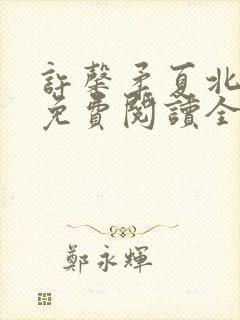 許馨矛夏北
免費閱讀全
鄭永輝